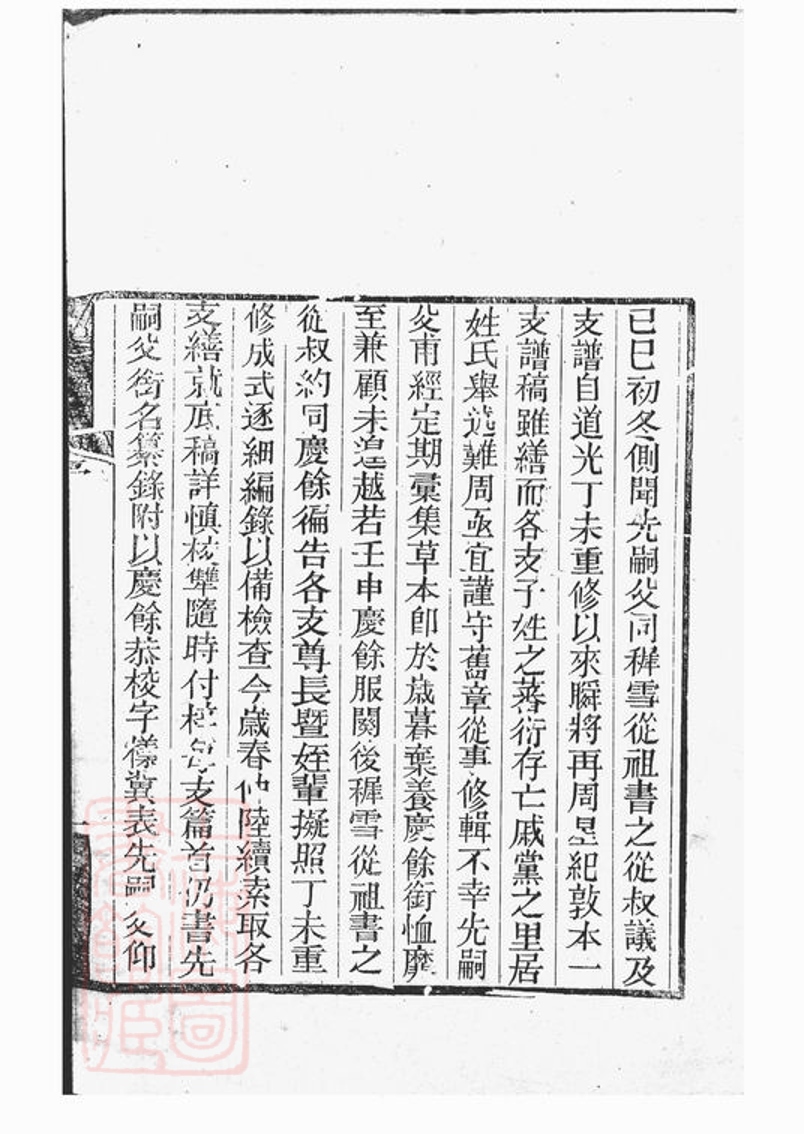 己巳初冬側聞先嗣父同穉雪從祖書之從叔議及
支譜自道光丁未重修以來瞬將再周星紀敦本一
支譜稿雖繕而各支子姓之蕃衍存亡戚黨之里居
姓氏舉述難周亟宜謹守舊章從事修輯不幸先嗣
父甫經定期彙集草本卽於歲暮棄養慶餘銜恤靡
至兼顧未遑越若壬申慶餘服闋後穉雪從祖書之
從叔約同慶餘徧告各支尊長曁姪輩擬照丁未重
修成式逐細編錄以備檢查今歲春仲陸續索取各
支繕就底稿詳慎校讐隨時付梓每支篇首仍書先
嗣父銜名纂錄附以慶餘恭校字樣冀表先嗣父仰